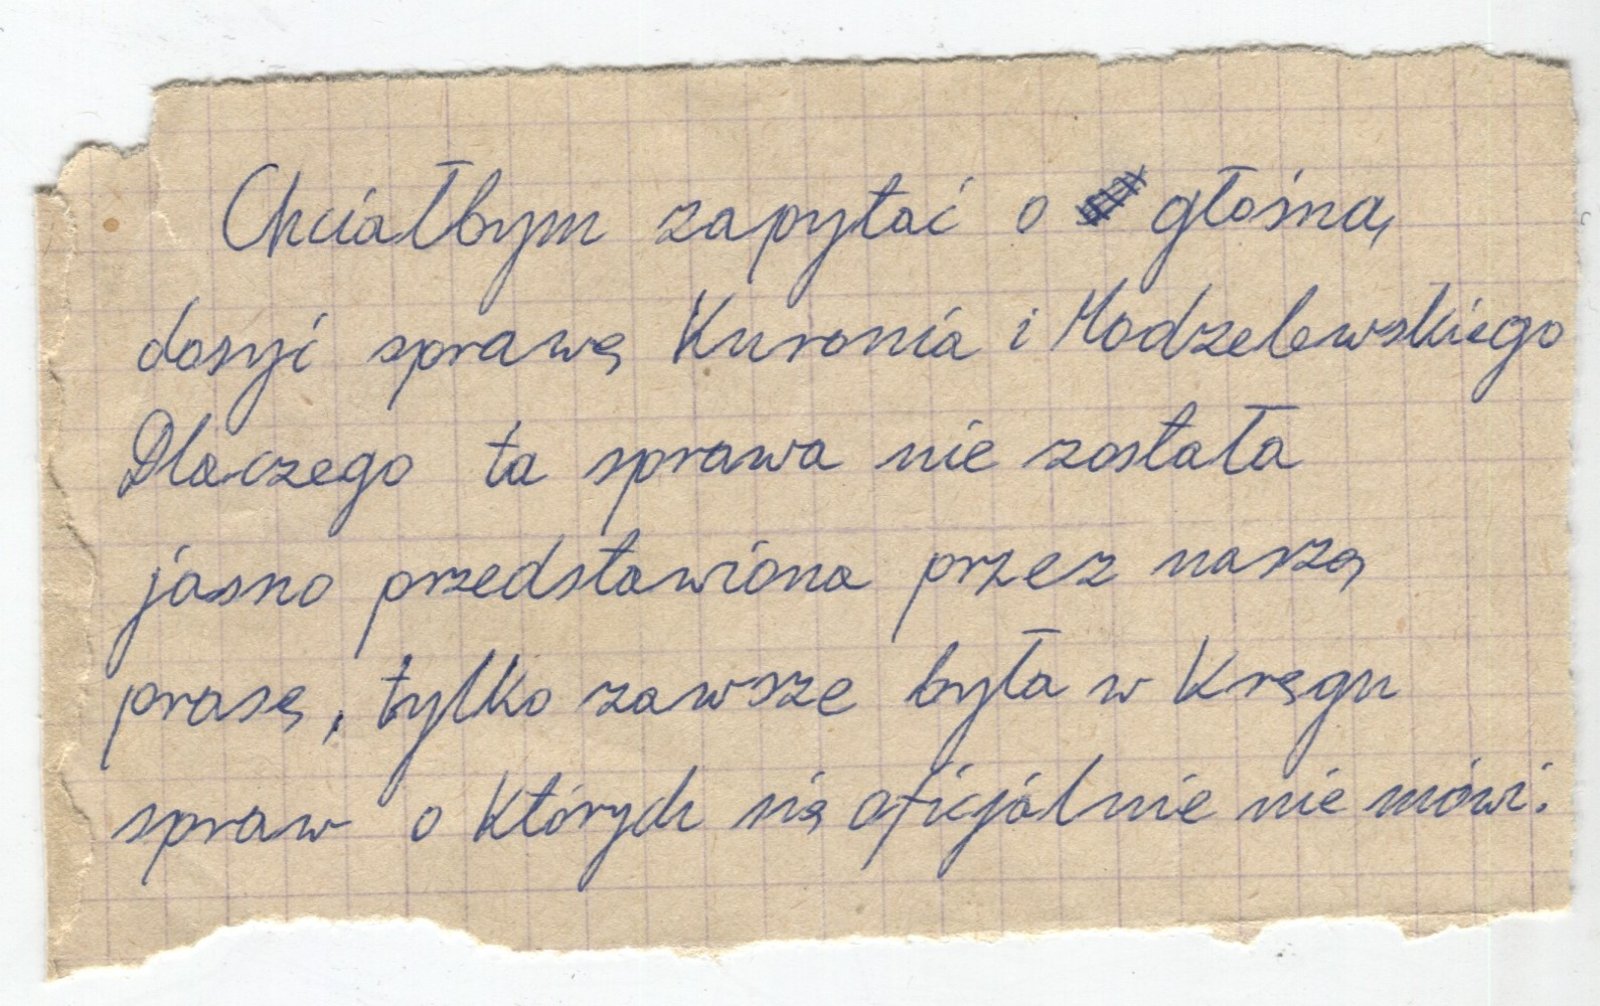 Chciałbym zapytać o głośną
dosyć sprawę Kuronia i Modzelewskiego
Dlaczego ta sprawa nie została
jasno przedstawiona przez naszą
prasę, tylko zawsze była w kręgu
spraw o których się oficjalnie nie mówi.